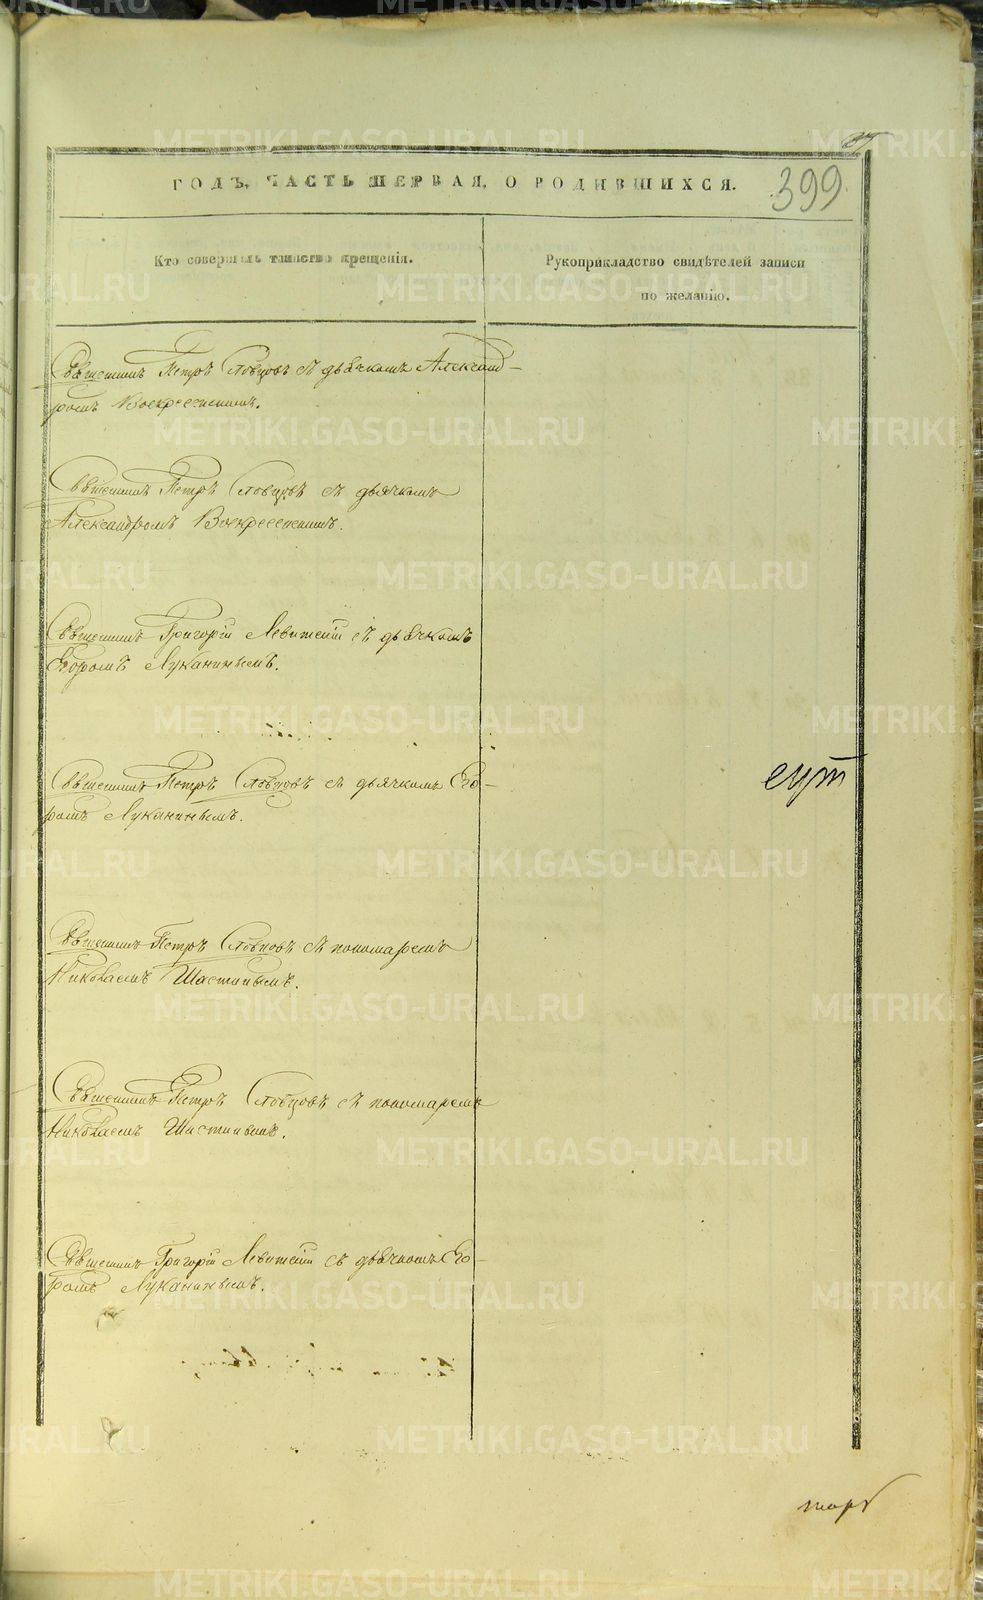 ГОДЪ, ЧАСТЬ ПЕРВАЯ, О РОДИВШИХСЯ.
399
Кто совершалъ таинство крещенія.
Рукоприкладство свидѣтелей записи
по желанію.
Священникъ Петръ Словцовъ съ дьячкомъ Александ-
ромъ Воскресенскимъ.
Священникъ Петръ Словцовъ съ дьячкомъ
Александромъ Воскресенскимъ.
Священникъ Григорій Левитскій съ дьячкомъ
Егоромъ Луканинымъ.
Священникъ Петръ Словцовъ съ дьячкомъ Его-
ромъ Луканинымъ.
Священникъ Петръ Словцовъ съ пономаремъ
Николаемъ Шастинымъ.
Священникъ Петръ Словцовъ съ пономаремъ
Николаемъ Шастинымъ.
Священникъ Григорій Левитскій съ дьячкомъ Его-
ромъ Луканинымъ.
METRIKI.GASO-URAL.RU